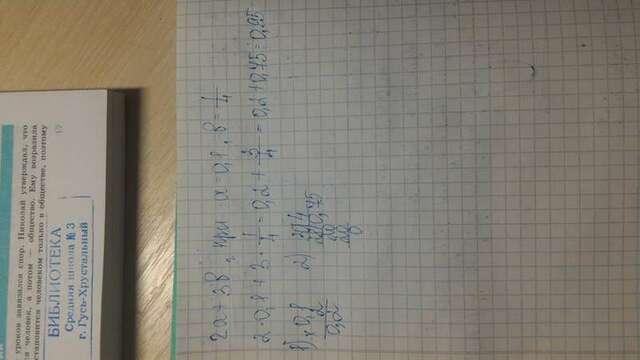 уроков завязался спор. Николай утверждал, что
ся человек, а потом — общество. Ему возразила
становится человеком только в обществе, поэтому
17
БИБЛИОТЕКА
Средняя школа № 3
г. Гусь-Хрустальный
2а+3в, при а=0,1, в=1/4
2·0,1+3·1/4=0,2+3/4=0,2+0,75=0,95
1) ×0,1
2
0,2
2) 30 4
28 0,75
20
20
0